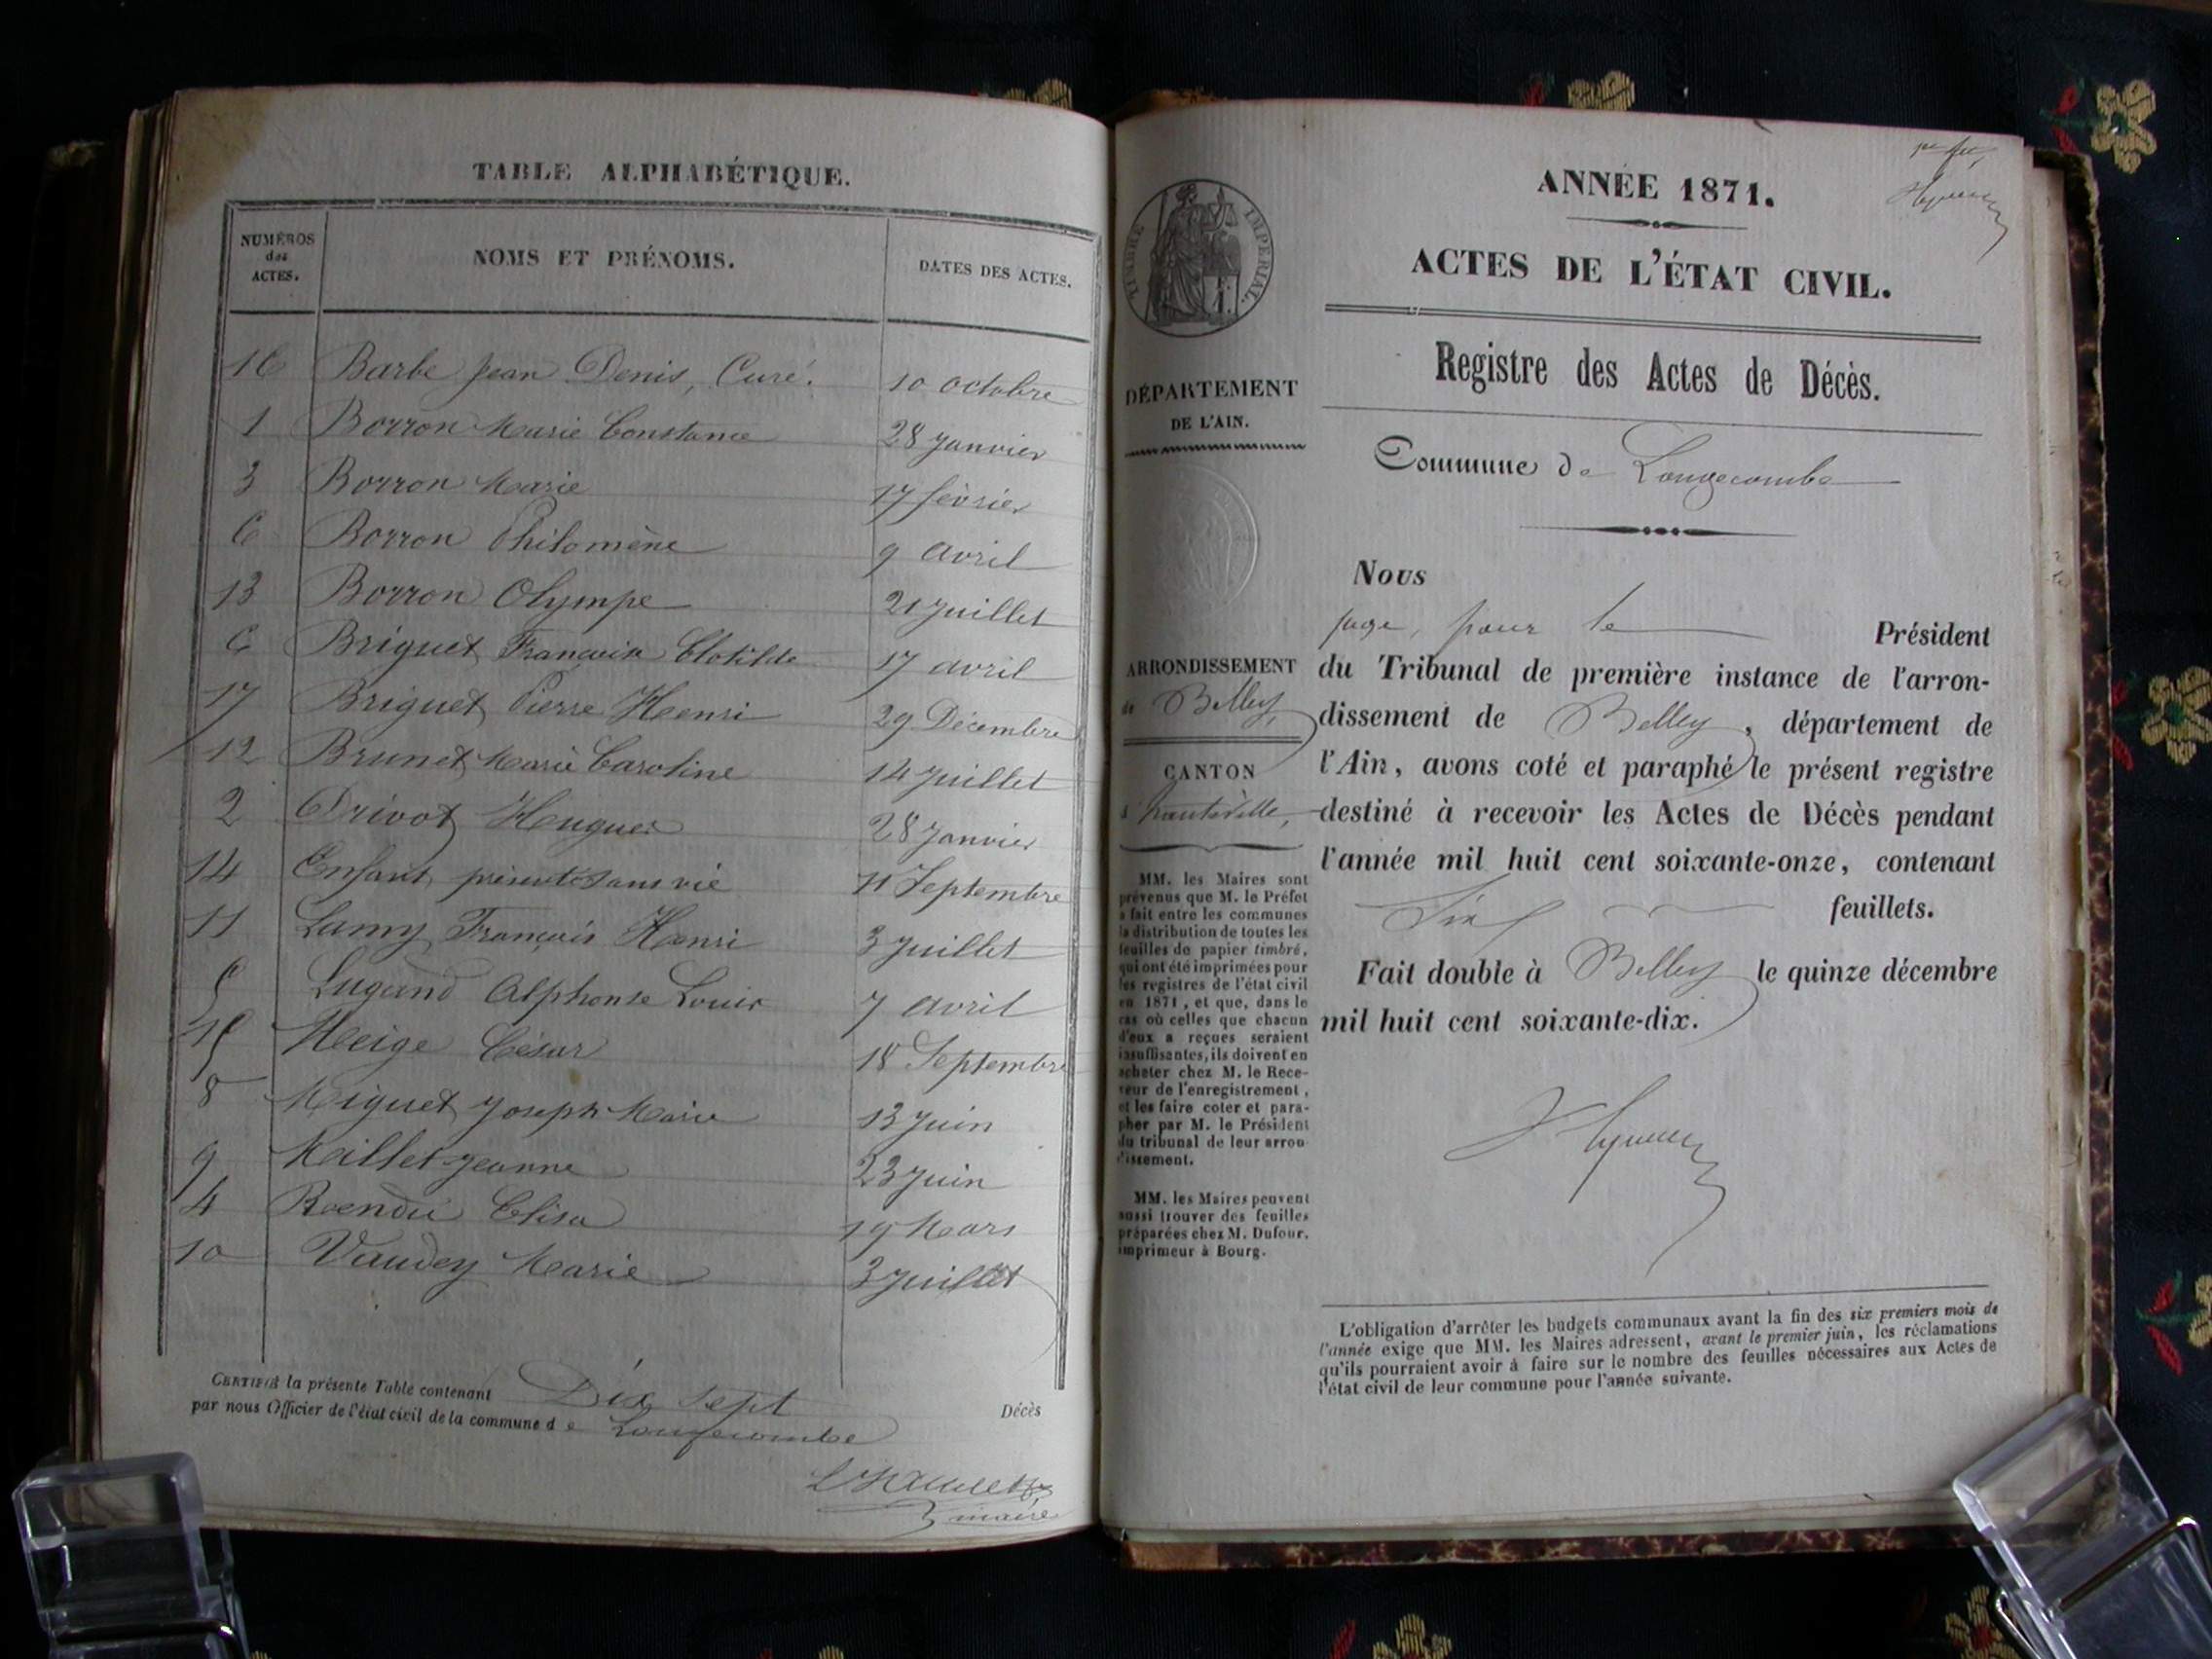 TABLE ALPHABÉTIQUE.
NUMÉROS des ACTES.
NOMS ET PRÉNOMS.
DATES DES ACTES.
16 Barbe Jean Denis, Curé. 10 octobre
1 Borron Marie Constance 28 Janvier
3 Borron Marie 17 février
6 Borron Philomène 9 avril
13 Borron Olympe 21 Juillet
Briguet Clotilde 17 avril
17 Briguet Pierre Henri 29 Décembre
12 Brunet Marie Caroline 14 Juillet
2 Drivot Hugues 28 Janvier
14 Enfant présenté sans vie 11 Septembre
11 Lamy François Henri 3 Juillet
5 Lugand Alphonse Louis 7 avril
15 Meige César 18 Septembre
8 Miguet Joseph Marie 13 Juin
9 Millet Jeanne 23 Juin
4 Rendu Elisa 19 Mars
10 Vaudey Marie 3 Juillet
CERTIFIÉ la présente Table contenant Dix sept Décès
par nous Officier de l'état civil de la commune de Longecombe
maire
ANNÉE 1871.
ACTES DE L'ÉTAT CIVIL.
Registre des Actes de Décès.
Commune de Longecombe
TIMBRE IMPÉRIAL.
DÉPARTEMENT
DE L'AIN.
ARRONDISSEMENT
de Belley,
CANTON
d'hauteville,
MM. les Maires sont
prévenus que M. le Préfet
a fait entre les communes
la distribution de toutes les
feuilles de papier timbré,
qui ont été imprimées pour
les registres de l'état civil
en 1871, et que, dans le
cas où celles que chacun
d'eux a reçues seraient
insuffisantes, ils doivent en
acheter chez M. le Rece-
veur de l'enregistrement,
et les faire coter et para-
pher par M. le Président
du tribunal de leur arron-
dissement.
MM. les Maires peuvent
aussi trouver des feuilles
préparées chez M. Dufour,
imprimeur à Bourg.
Nous
juge, pour le Président
du Tribunal de première instance de l'arron-
dissement de Belley, département de
l'Ain, avons coté et paraphé le présent registre
destiné à recevoir les Actes de Décès pendant
l'année mil huit cent soixante-onze, contenant
Six feuillets.
Fait double à Belley le quinze décembre
mil huit cent soixante-dix.
L'obligation d'arrêter les budgets communaux avant la fin des six premiers mois de
l'année exige que MM. les Maires adressent, avant le premier juin, les réclamations
qu'ils pourraient avoir à faire sur le nombre des feuilles nécessaires aux Actes de
l'état civil de leur commune pour l'année suivante.